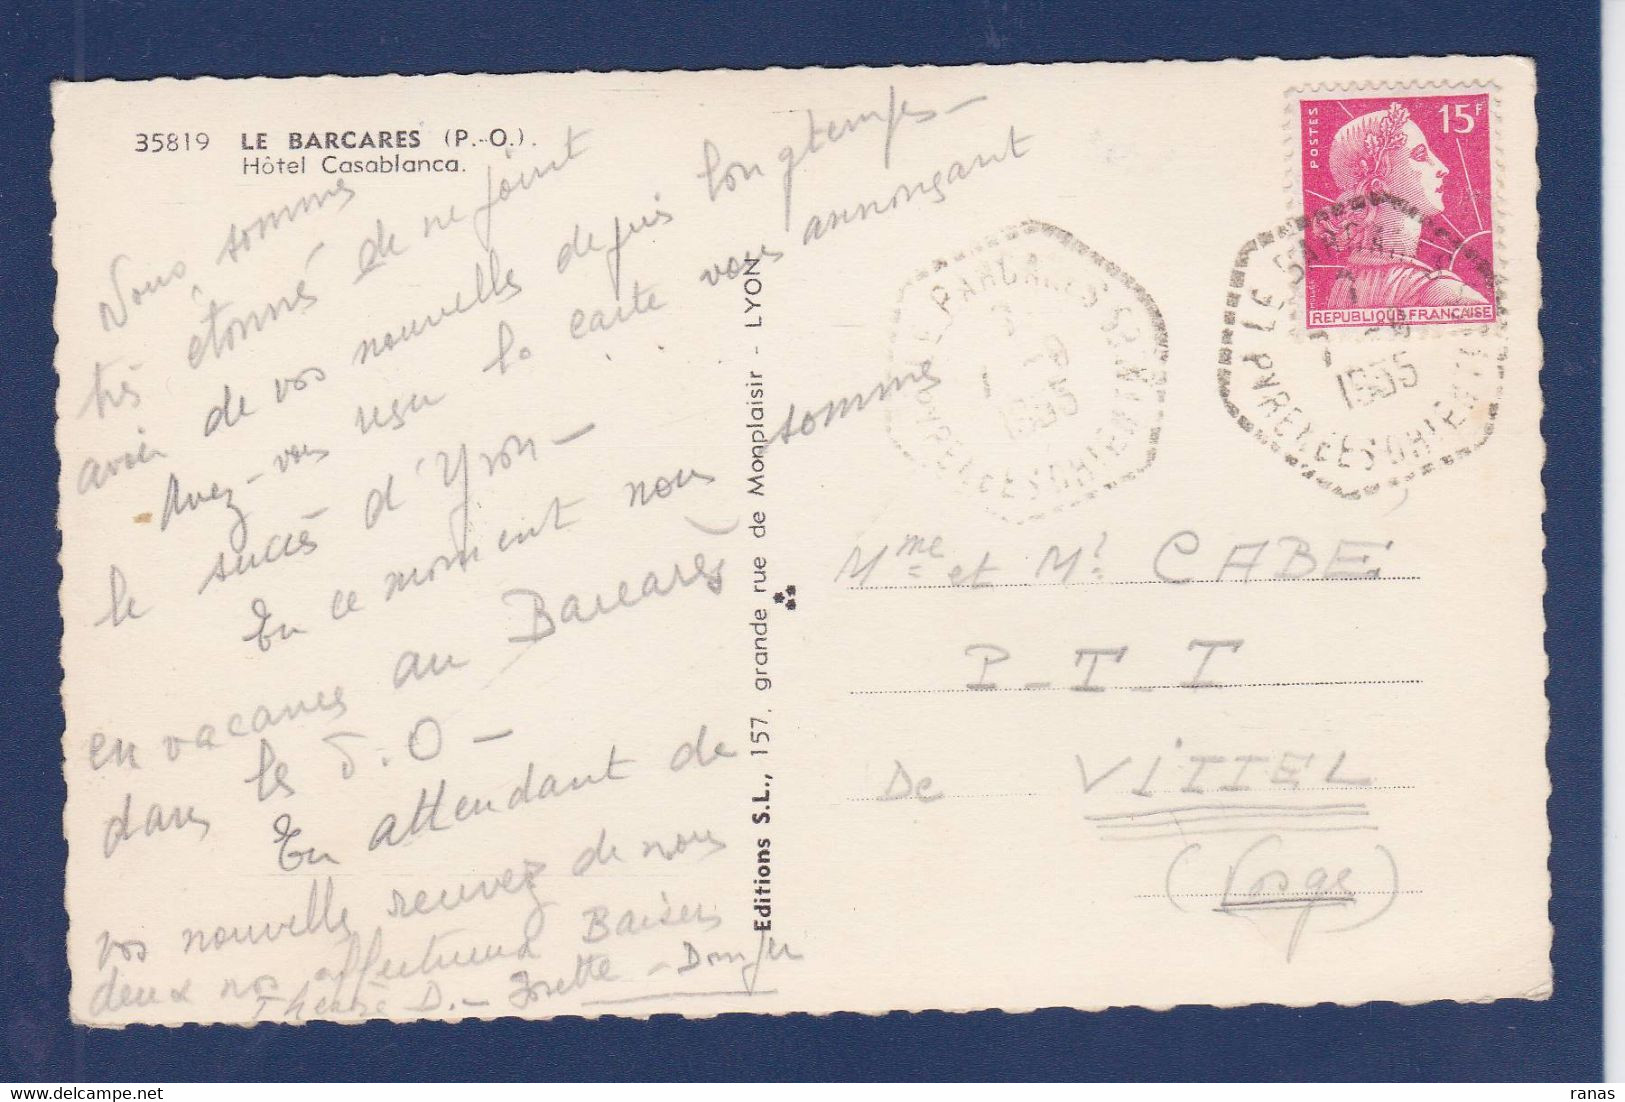 35819 LE BARCARES (P.-O.).
Hôtel Casablanca.
Nous sommes
très étonné de ne joint
avoir de vos nouvelle depuis longtemps –
Avez-vous reçu la carte vous annonçant
le succès d'Yvon –
En ce moment nous sommes
en vacances au Barcarès
dans les P.O –
En attendant de
vos nouvelle recevez de nous
deux nos affectueux Baisers
Thérèse D. – Josette –
Editions S.L., 157, grande rue de Monplaisir - LYON
POSTES
15F
REPUBLIQUE FRANÇAISE
LE BARCARES
1955
PYRENEES ORIENTALES
LE BARCARES
1955
PYRENEES ORIENTALES
Mme et Mr CABE
P-T-T
De VITTEL
(Vosge)
ranas